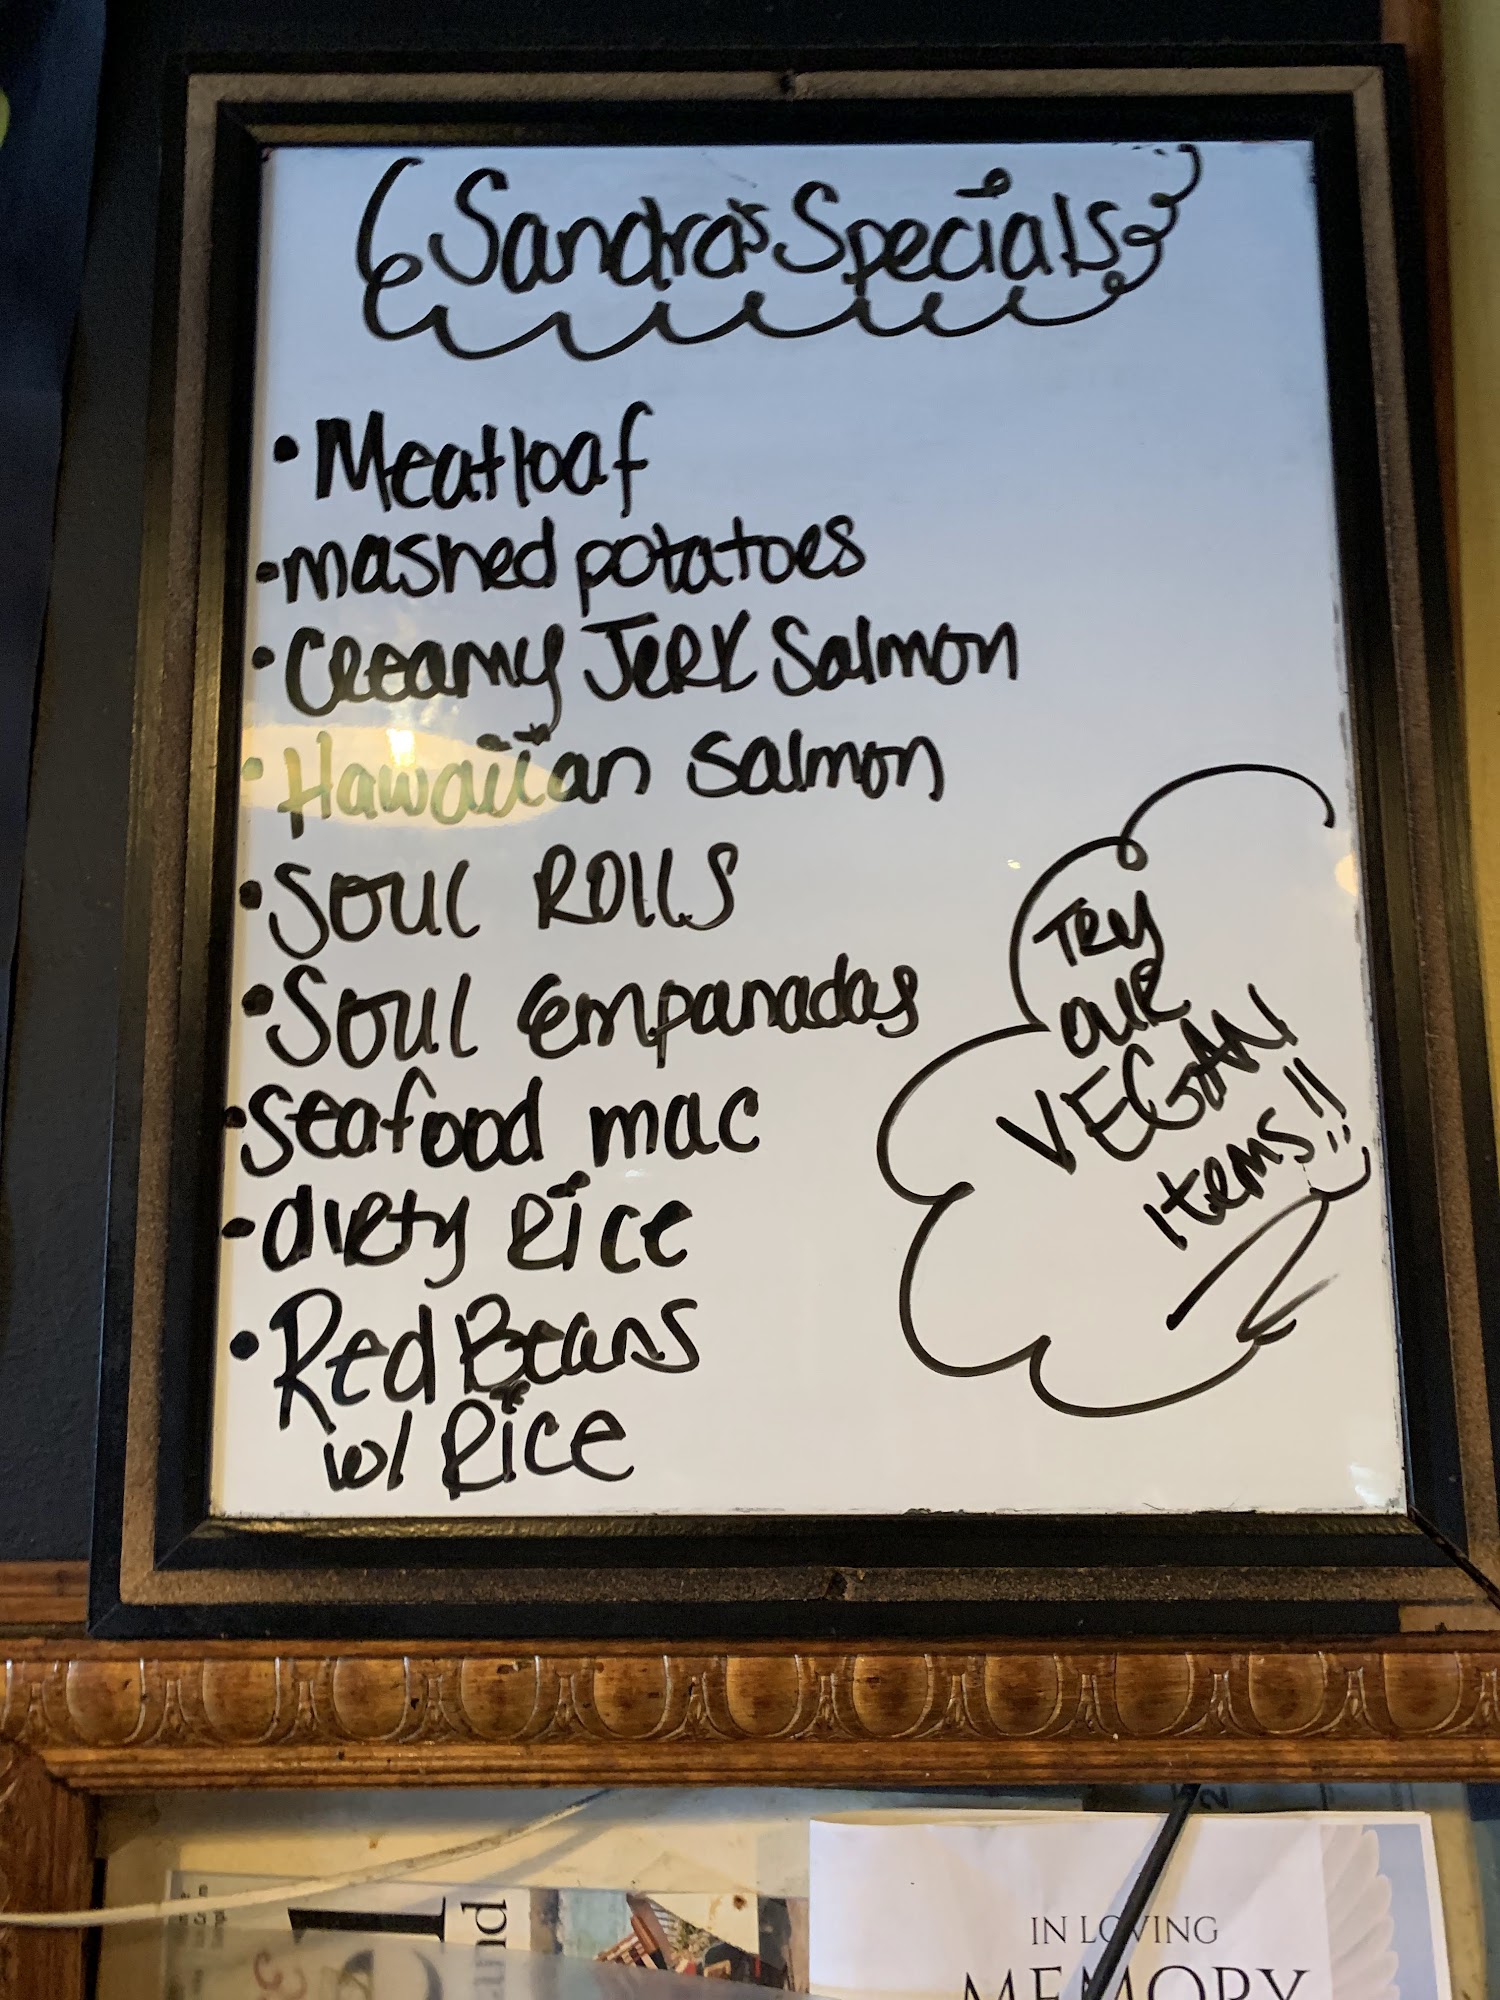 Sandra's Specials
• Meatloaf
• mashed potatoes
• Creamy Jerk Salmon
• Hawaiian Salmon
• Soul Rolls
• Soul Empanadas
• Seafood mac
• dirty Rice
• Red Beans
w/ Rice
TRY
OUR
VEGAN
Items!!
IN LOVING
MEMORY